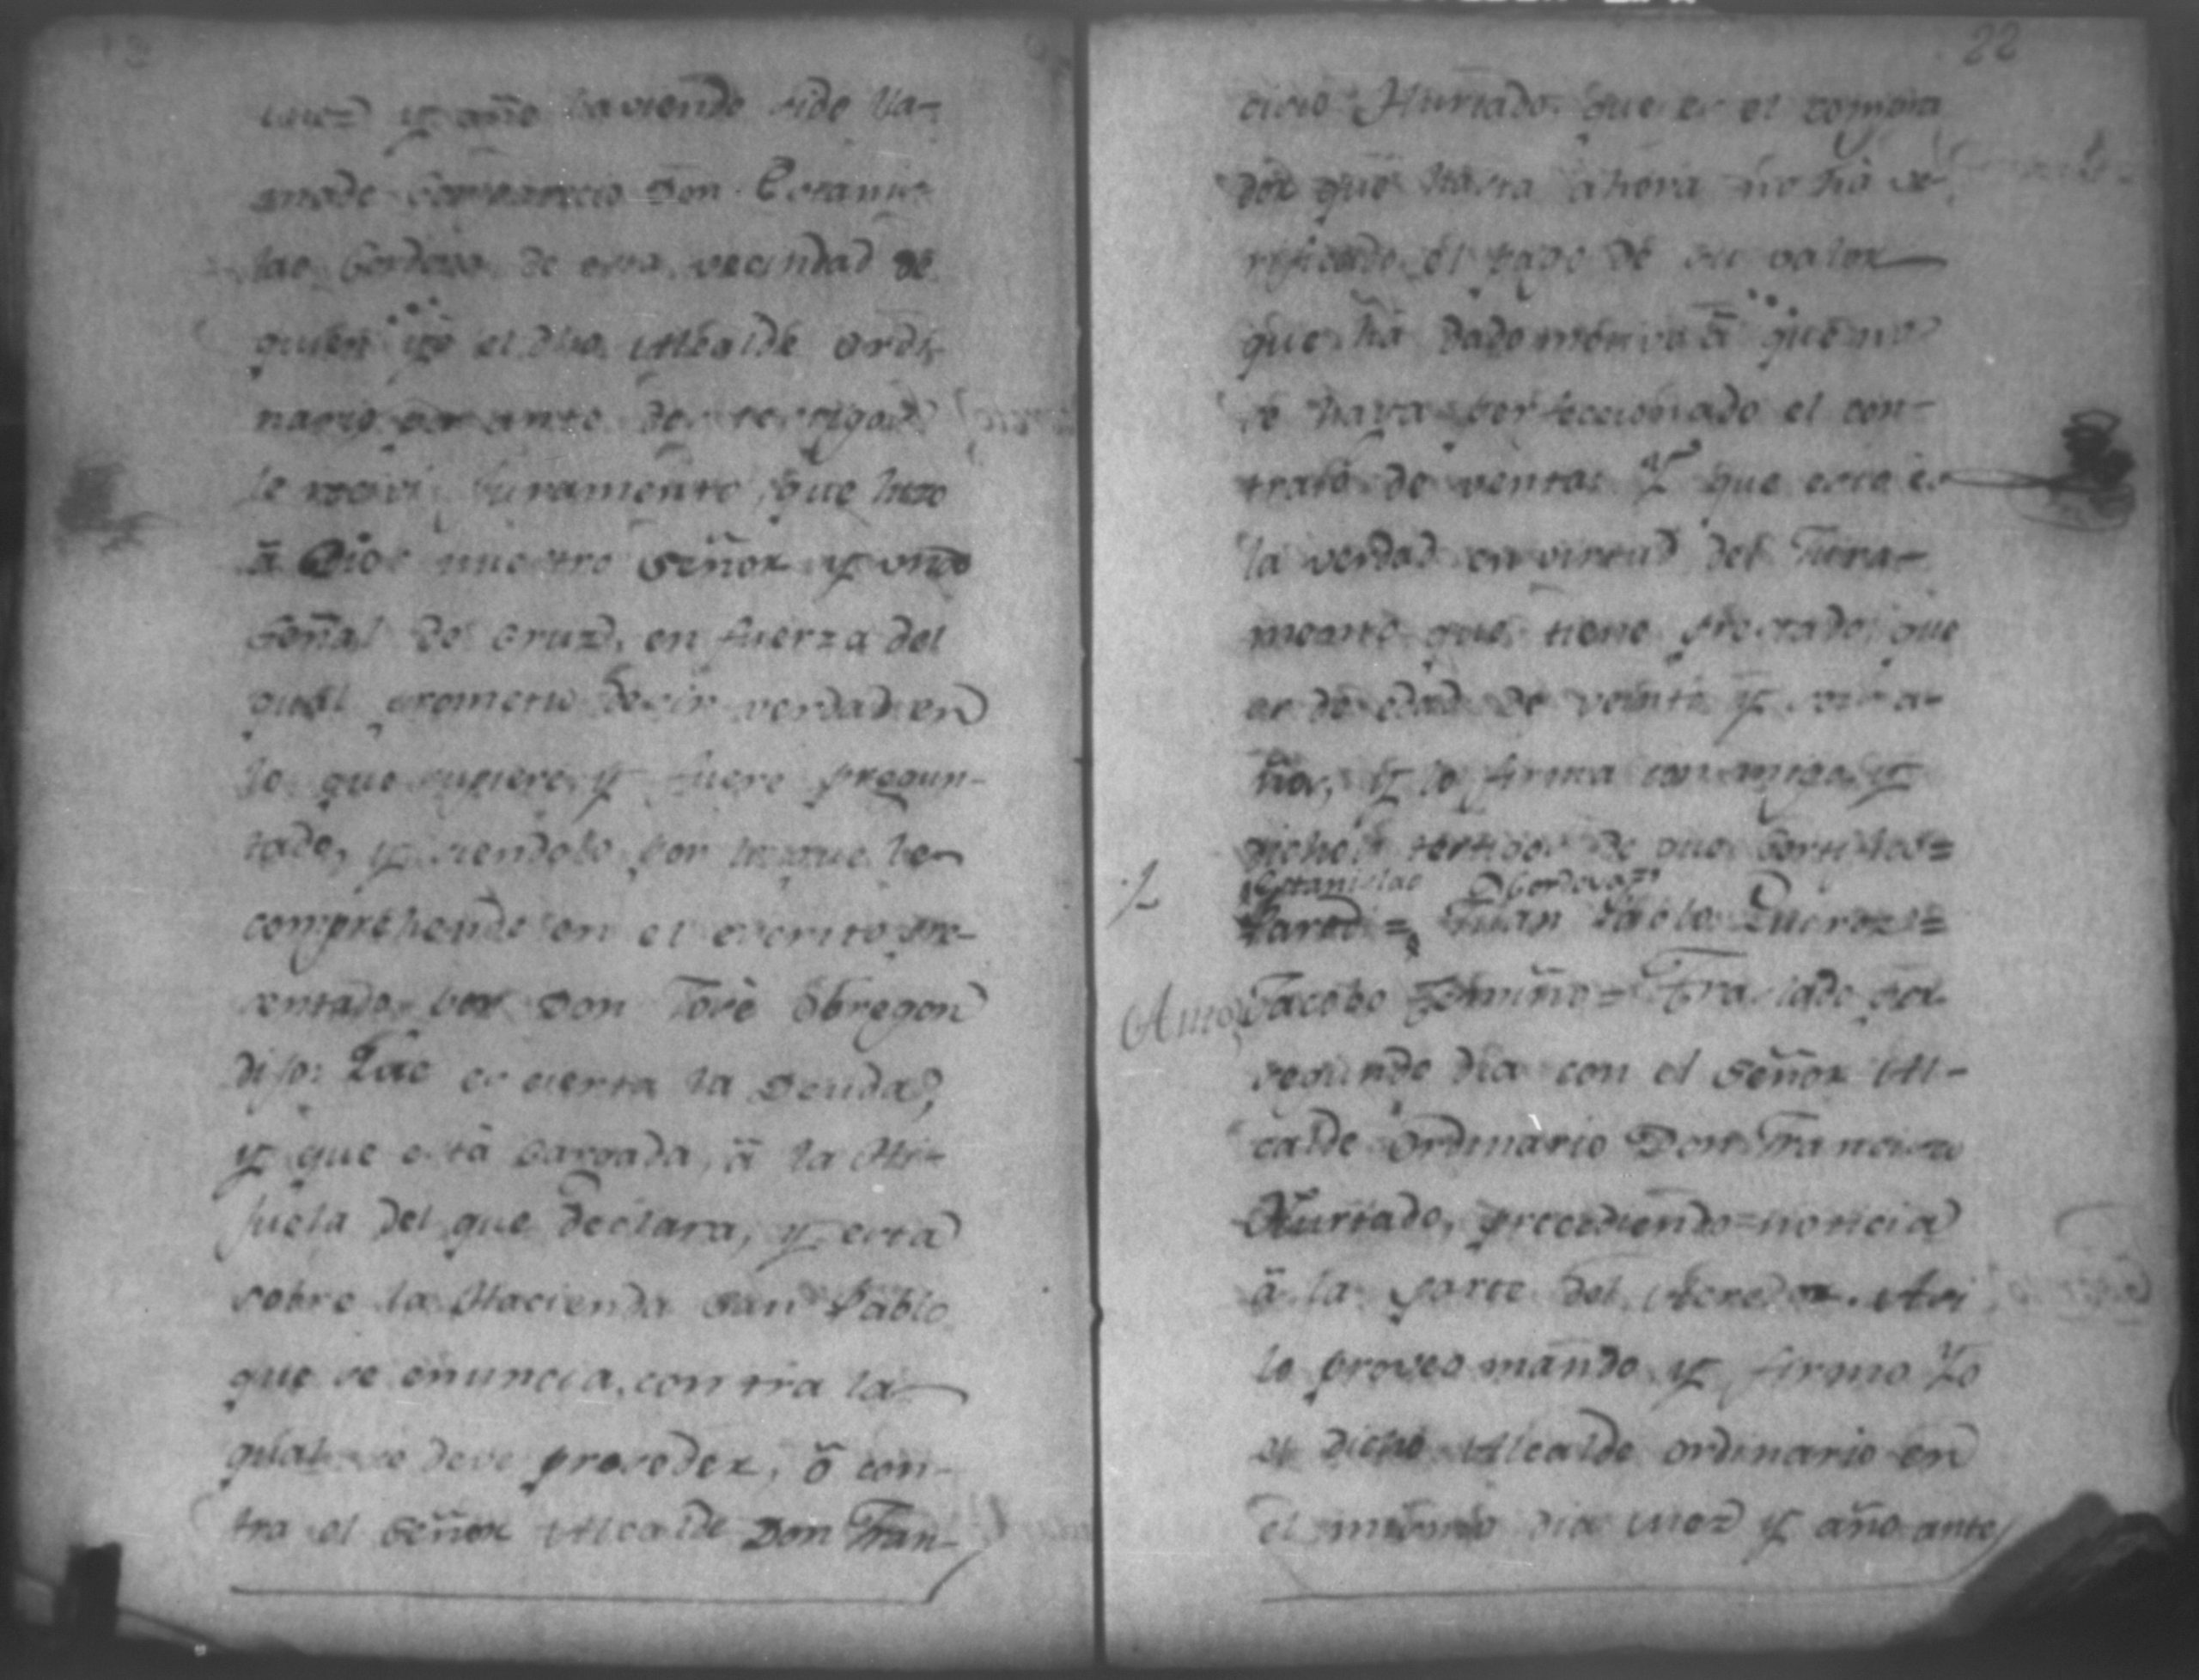 mez y año haviendo sido lla-
mado comparecio Don Estanis-
lao Cordova de esta vecindad de
quien yo el dho Alcalde ordi-
nario por ante de testigos
le recivi juramento, que hizo
â Dios nuestro Señor y una
Señal de Cruz, en fuerza del
qual prometio decir verdad en
lo que supiere y fuere pregun-
tado, y siendolo por lo que se
comprehende en el escrito pre-
sentado por Don José Obregon
dijo: Que es cierta la Deuda,
y que está cargada, â la Hi-
juela del que declara, y está
sobre la Hacienda San Pablo
que se enuncia, contra la
qual se deve proceder, ô con-
tra el Señor Alcalde Don Fran-
22
cisco Hurtado que es el compra
dor que hasta ahora no há ve-
rificado el pago de su valor
que há dado motivo â que no
se haya perfeccionado el con-
trato de venta: Y que esta es
la verdad en virtud del Jura-
mento que tiene prestado: que
es de edad de veinte y seis a-
ños, y lo firma conmigo, y
dichos testigos de que Certifico=
Estanislao Cordova=
Pardo= Juan Pablo Queroz=
Jacobo = Traslado por
segundo dia con el Señor Al-
calde Ordinario Don Francisco
Hurtado, precediendo=noticia
â la parte del Acredor. Asi
lo proveo mando y firmo Yo
el dicho Alcalde ordinario en
el mismo dia mez y año ante